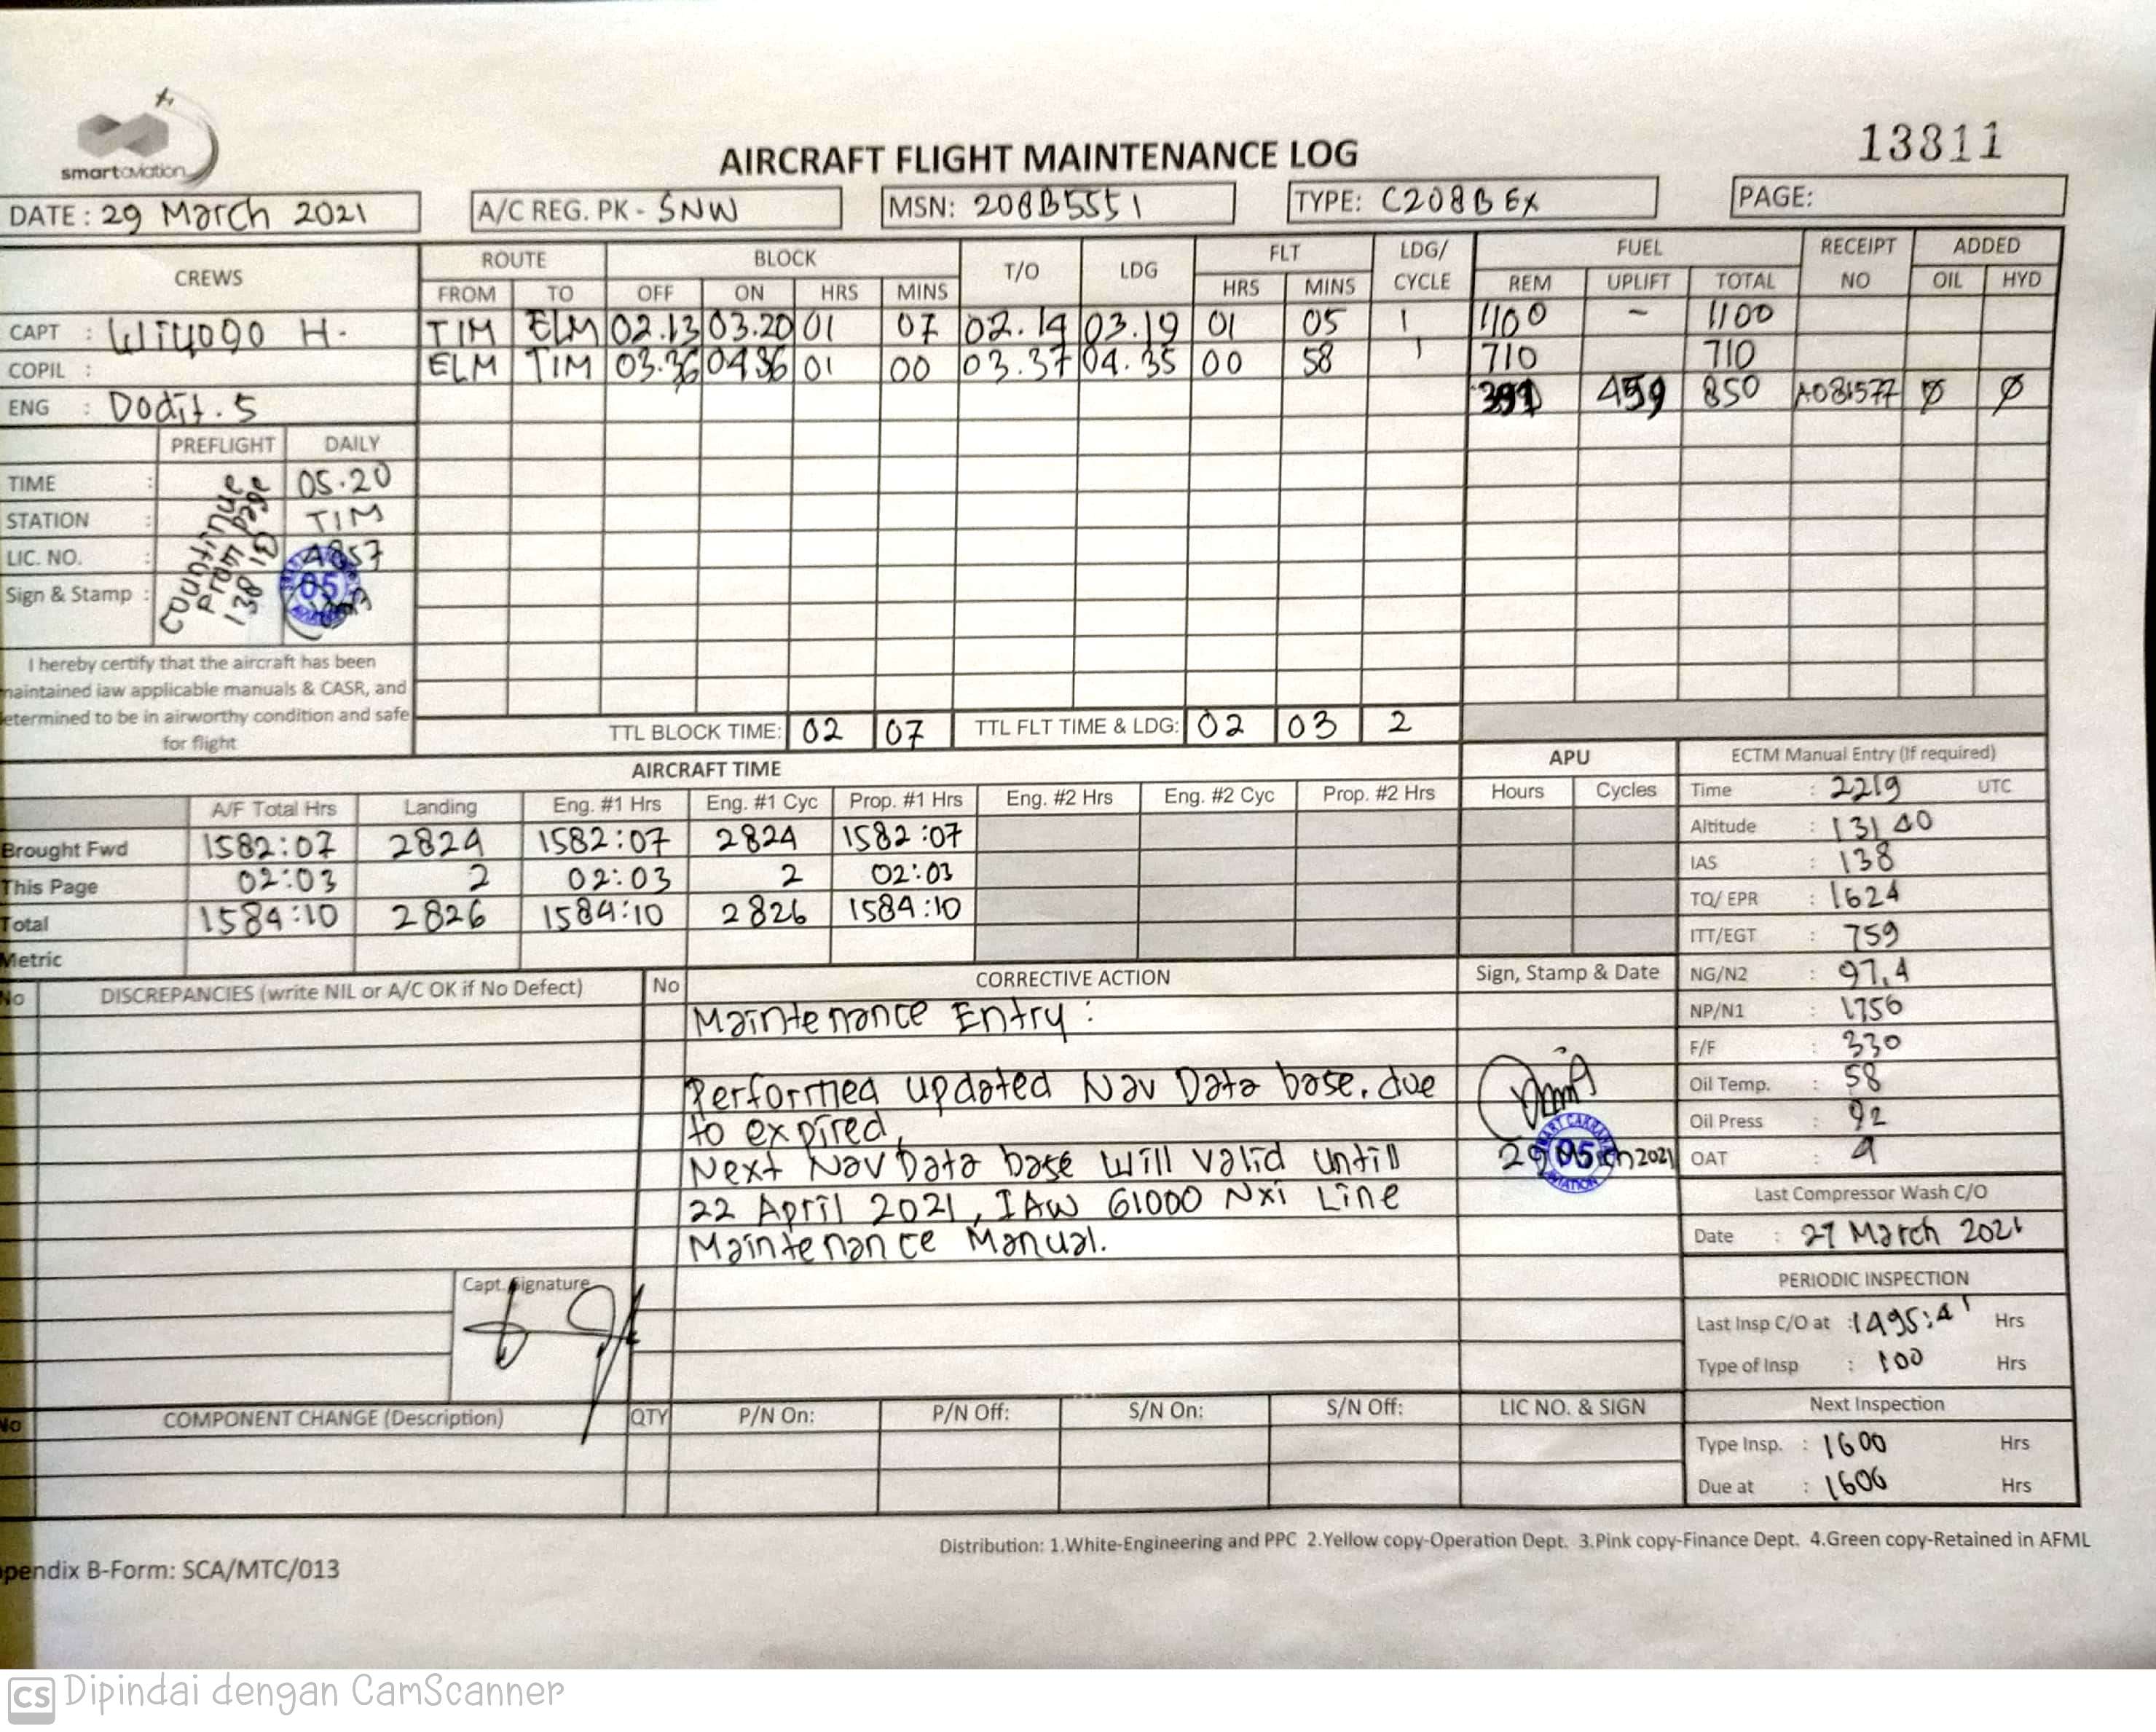 smartaviation
AIRCRAFT FLIGHT MAINTENANCE LOG
13811
DATE : 29 March 2021 A/C REG. PK - SNW MSN: 208B5551 TYPE: C208B EX PAGE:
CREWS ROUTE BLOCK T/O LDG FLT LDG/ CYCLE FUEL RECEIPT NO ADDED
FROM TO OFF ON HRS MINS HRS MINS REM UPLIFT TOTAL OIL HYD
CAPT : Wiyogo H. TIM ELM 02.13 03.20 01 07 02.14 03.19 01 05 1 1100 - 1100
COPIL : ELM TIM 03.36 04.36 01 00 03.37 04.35 00 58 1 710 710
ENG : Dodit. S 391 459 850 A081577 Ø Ø
PREFLIGHT DAILY
TIME : 05.20
STATION : TIM
LIC. NO. : 4857
Sign & Stamp :
Countinue
From page
13810
05
I hereby certify that the aircraft has been
maintained iaw applicable manuals & CASR, and
etermined to be in airworthy condition and safe
for flight
TTL BLOCK TIME: 02 07 TTL FLT TIME & LDG: 02 03 2
AIRCRAFT TIME APU ECTM Manual Entry (If required)
A/F Total Hrs Landing Eng. #1 Hrs Eng. #1 Cyc Prop. #1 Hrs Eng. #2 Hrs Eng. #2 Cyc Prop. #2 Hrs Hours Cycles
Brought Fwd 1582:07 2824 1582:07 2824 1582:07
This Page 02:03 2 02:03 2 02:03
Total 1584:10 2826 1584:10 2826 1584:10
Metric
Time : 2219 UTC
Altitude : 13140
IAS : 138
TQ/ EPR : 1624
ITT/EGT : 759
NG/N2 : 97,4
NP/N1 : 1756
F/F : 330
Oil Temp. : 58
Oil Press : 92
OAT : 9
Last Compressor Wash C/O
Date : 27 March 2021
PERIODIC INSPECTION
Last Insp C/O at : 1495:41 Hrs
Type of Insp : 100 Hrs
Next Inspection
Type Insp. : 1600 Hrs
Due at : 1606 Hrs
No DISCREPANCIES (write NIL or A/C OK if No Defect) No CORRECTIVE ACTION Sign, Stamp & Date
Maintenance Entry :
Performed updated Nav Data base. due
to expired,
Next Nav Data base will valid untill
22 April 2021, IAW G1000 Nxi Line
Maintenance Manual.
05
AVIATION
2021
Capt. Signature
No COMPONENT CHANGE (Description) QTY P/N On: P/N Off: S/N On: S/N Off: LIC NO. & SIGN
Distribution: 1.White-Engineering and PPC 2.Yellow copy-Operation Dept. 3.Pink copy-Finance Dept. 4.Green copy-Retained in AFML
pendix B-Form: SCA/MTC/013
CS Dipindai dengan CamScanner